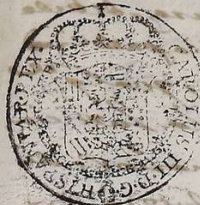 CAROLUS III·D·G·HISPANIAR·REX